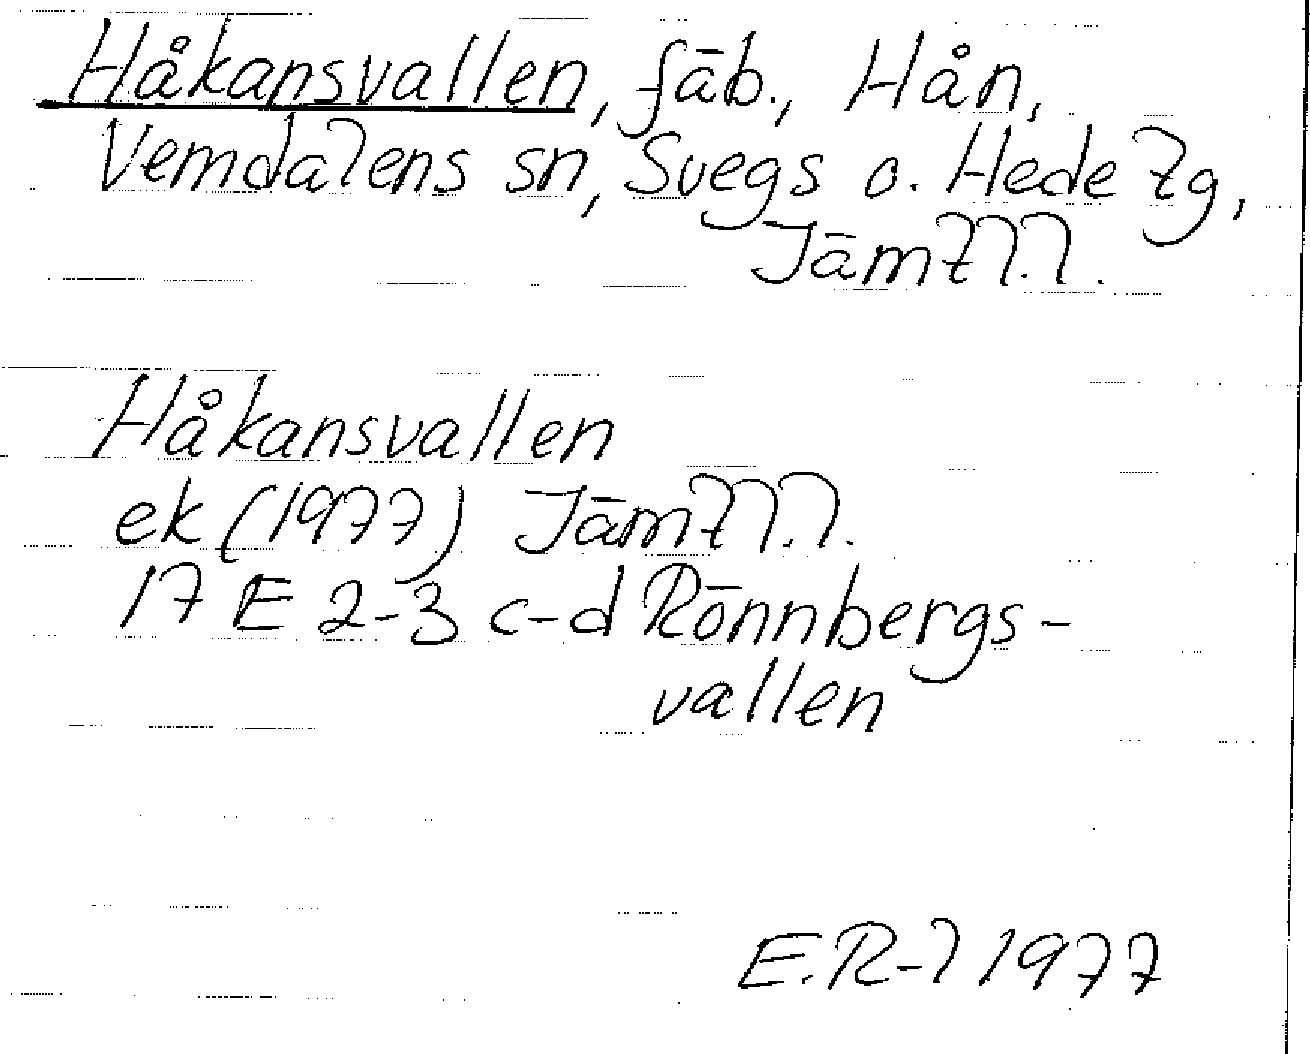 Håkansvallen, fäb., Hån,
Vemdalens sn, Svegs o. Hede tg,
Jämtl.l.
Håkansvallen
ek (1977) Jämtl.l.
17 E 2-3 c-d Rönnbergs-
vallen
E.R-l 1977